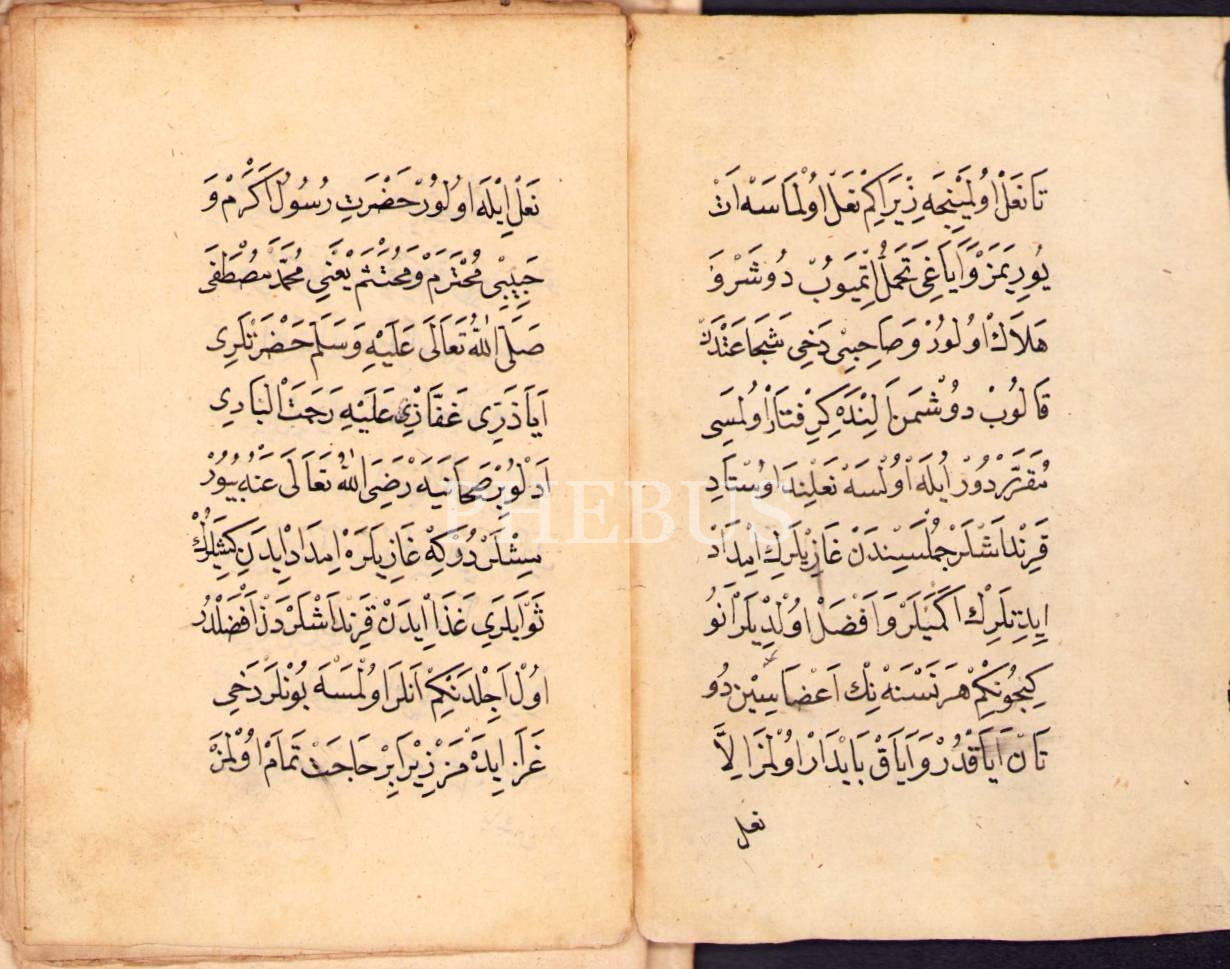 تَا نَعَلْ اُولْمَيِنْجَه زِيرَا كِمْ نَعَلْ اُولْمَاسَه اَتْ
يُورِيَمَزْ وَ اَيَاغِى تَحَمُّلْ اِتْمِيُوبْ دُوشَرْ وَ
هَلَاكْ اُولُورْ وَ صَاحِبِى دَخِى شَجَاعَتْدَنْ
قَالُوبْ دُوشْمَنْ اَلِنْدَه كِرِفْتَارْ اُولْمَسِى
مُقَرَّرْدُرْ اُيْلَه اُولْسَه نَعَلْبَنْد اُوسْتَادِ
قَرِنْدَاشْلَرْ جُمْلَسِيندَنْ غَازِيلَرِكْ اِمْدَادْ
اِيدِيجِلَرِكْ اَكْمَلَرْ وَ اَفْضَلْ اُولْدِيلَرْ اَنُو
كِيجُونكِمْ هَرْ نَسْنَه نِكْ اَعْضَاسِيِنْ دُو
تَانْ اَيَاقْدُرْ وَ اَيَاقْ پَايْدَارْ اُولْمَزْ اِلَّا
نعل
نَعَلْ اِيْلَه اُولُورْ حَضْرَتِ رُسُولْ اَكْرَمْ وَ
حَبِيبِى مُحْتَرَمْ وَ مُحْتَشَمْ يَعْنِى مُحَمَّدْ مُصْطَفَى
صَلَّى اللهُ تَعَالَى عَلَيْهِ وَسَلَّمْ حَضْرَتْلَرِى
اَيَا ذَرِّى غَفَّارِى عَلَيْهِ رَحْمَتْ الْبَارِى
اَدْلُو بِرْ صَحَابَيَه رَضِىَ اللهُ تَعَالَى عَنْهُ بُيُورْ
مِشْلَرْدُرْ كِه غَازِيلَرَه اِمْدَادْ اِيدَنْ كِشِيلَرُكْ
ثَوَابلَرِى غَزَا اِيدَنْ قَرِنْدَاشْلَرْدَنْ اَفْضَلْدُرْ
اُولْ اَجِلْدَنْكِمْ اَنْلَرْ اُولْمَسَه بُونْلَرْ دَخِى
غَزَا اِيدَه مَزْ زِيرَا بِرْ حَاجَتْ تَمَامْ اُولْمَزْ
PHEBUS